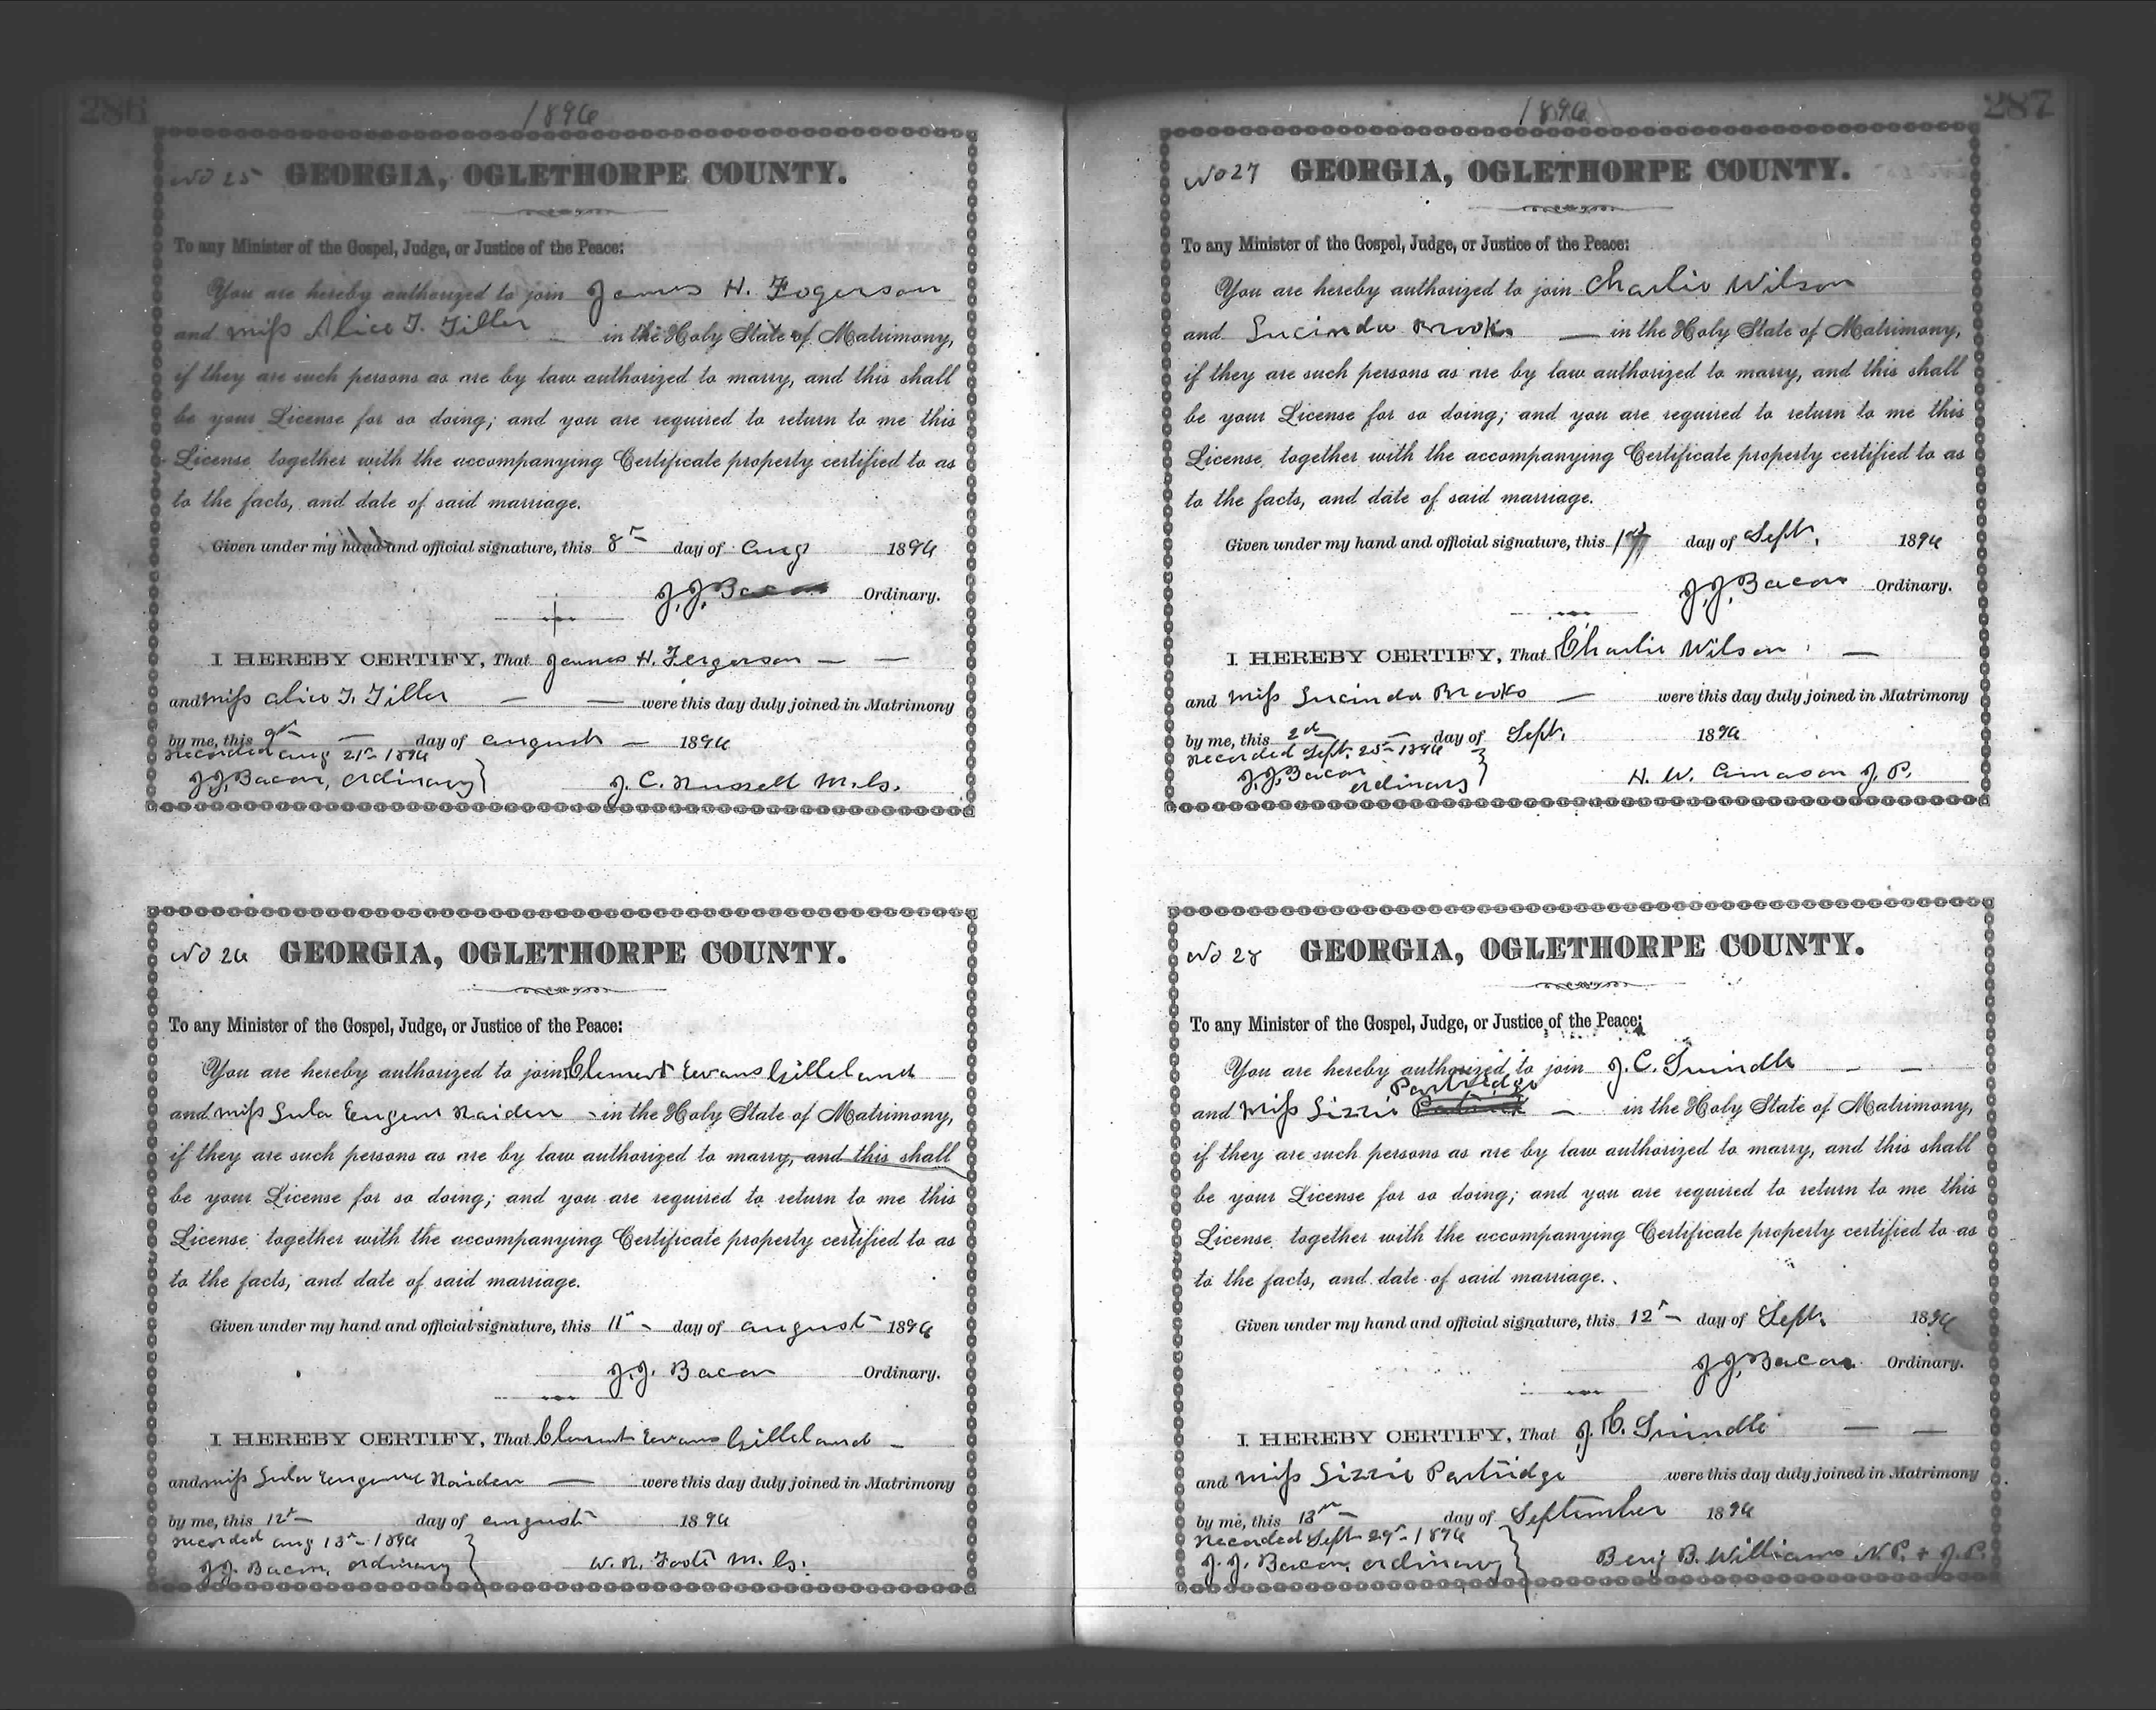 286
1896
No 25 GEORGIA, OGLETHORPE COUNTY.
To any Minister of the Gospel, Judge, or Justice of the Peace:
You are hereby authorized to join James H. Fogerson
and miss Alice T. Tiller in the Holy State of Matrimony,
if they are such persons as are by law authorized to marry, and this shall
be your License for so doing; and you are required to return to me this
License, together with the accompanying Certificate property certified to as
to the facts, and date of said marriage.
Given under my hand and official signature, this 8th day of Aug 1896
J. J. Bacon Ordinary.
I HEREBY CERTIFY, That James H. Fergerson
and miss Alice T. Tiller were this day duly joined in Matrimony
by me, this 9th day of August 1896
Recorded Aug 21st 1896
J. J. Bacon, Ordinary J. C. Russell M. G.
No 26 GEORGIA, OGLETHORPE COUNTY.
To any Minister of the Gospel, Judge, or Justice of the Peace:
You are hereby authorized to join Clement Evans Gilleland
and miss Lula Eugene Raiden in the Holy State of Matrimony,
if they are such persons as are by law authorized to marry, and this shall
be your License for so doing; and you are required to return to me this
License, together with the accompanying Certificate property certified to as
to the facts, and date of said marriage.
Given under my hand and official signature, this 11th day of August 1896
J. J. Bacon Ordinary.
I HEREBY CERTIFY, That Clement Evans Gilleland
and miss Lula Eugene Raiden were this day duly joined in Matrimony
by me, this 12th day of August 1896
Recorded Aug 13th 1896
J. J. Bacon, Ordinary W. R. Foote M. G.
287
1896
No 27 GEORGIA, OGLETHORPE COUNTY.
To any Minister of the Gospel, Judge, or Justice of the Peace:
You are hereby authorized to join Charlie Wilson
and Lucinda Brooks in the Holy State of Matrimony,
if they are such persons as are by law authorized to marry, and this shall
be your License for so doing; and you are required to return to me this
License, together with the accompanying Certificate property certified to as
to the facts, and date of said marriage.
Given under my hand and official signature, this 1st day of Sept. 1896
J. J. Bacon Ordinary.
I HEREBY CERTIFY, That Charlie Wilson
and Miss Lucinda Brooks were this day duly joined in Matrimony
by me, this 2d day of Sept. 1896
Recorded Sept. 25th 1896
J. J. Bacon H. W. Amason J. P.
Ordinary
No 28 GEORGIA, OGLETHORPE COUNTY.
To any Minister of the Gospel, Judge, or Justice of the Peace:
You are hereby authorized to join J. C. Swindle
Partridge
and Miss Lizzie in the Holy State of Matrimony,
if they are such persons as are by law authorized to marry, and this shall
be your License for so doing; and you are required to return to me this
License, together with the accompanying Certificate property certified to as
to the facts, and date of said marriage.
Given under my hand and official signature, this 12th day of Sept. 1896
J. J. Bacon Ordinary.
I HEREBY CERTIFY, That J. C. Swindle
and Miss Lizzie Partridge were this day duly joined in Matrimony
by me, this 13th day of September 1896
Recorded Sept 29th 1896
J. J. Bacon, Ordinary Benj B. Williams N. P. & J. P.